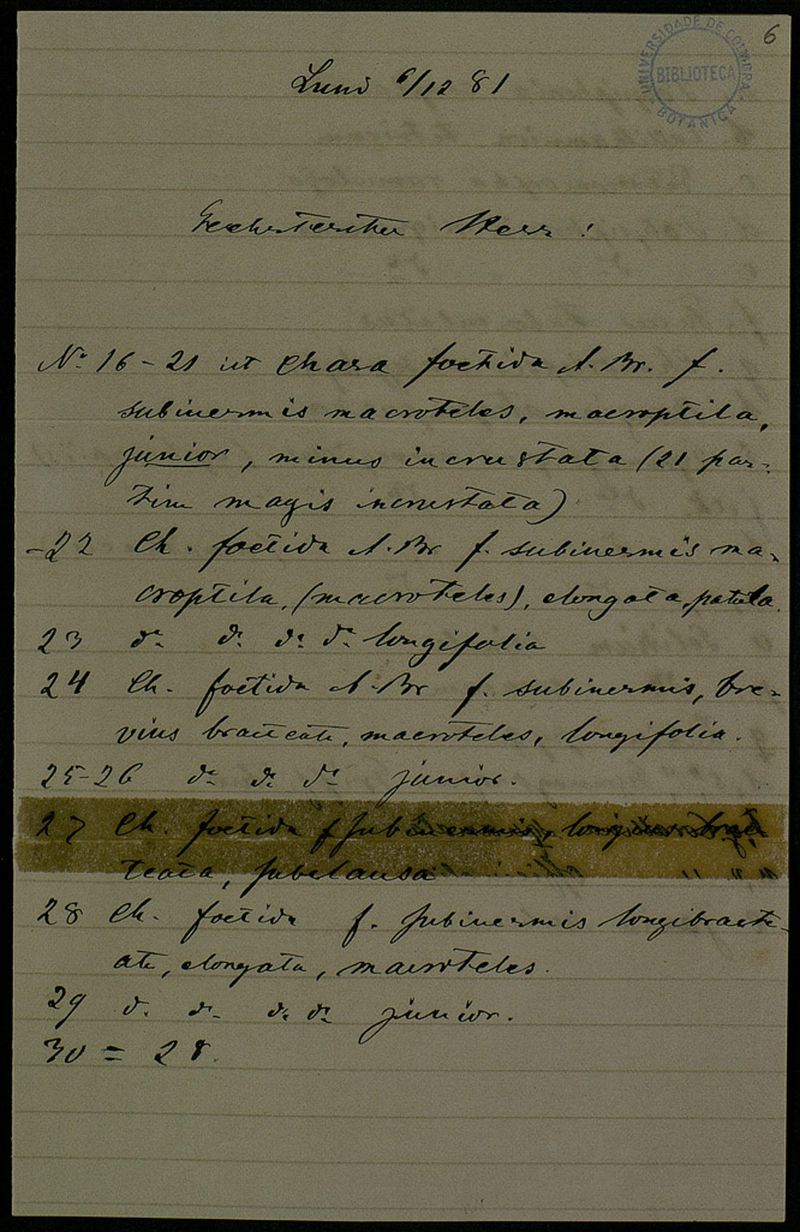 6
UNIVERSIDADE DE COIMBRA
BIBLIOTECA
BOTANICA
Lund 6/12 81
Geehrtester Herr!
No 16-21 ist Chara foetida A. Br. f.
subinermis macroteles, macroptila,
junior, minus incrustata (21 par-
tim magis incrustata)
-22 Ch. foetida A. Br f. subinermis ma-
croptila, (macroteles), elongata, patula.
23 do do do do longifolia
24 Ch. foetida A. Br f. subinermis, bre-
vius bracteata, macroteles, longifolia.
25-26 do do do junior.
27 Ch. foetida f subinermis, longius brac-
teata, subclausa
28 Ch. foetida f. subinermis longibracte-
ata, elongata, macroteles.
29 do do do do junior.
30 = 28.